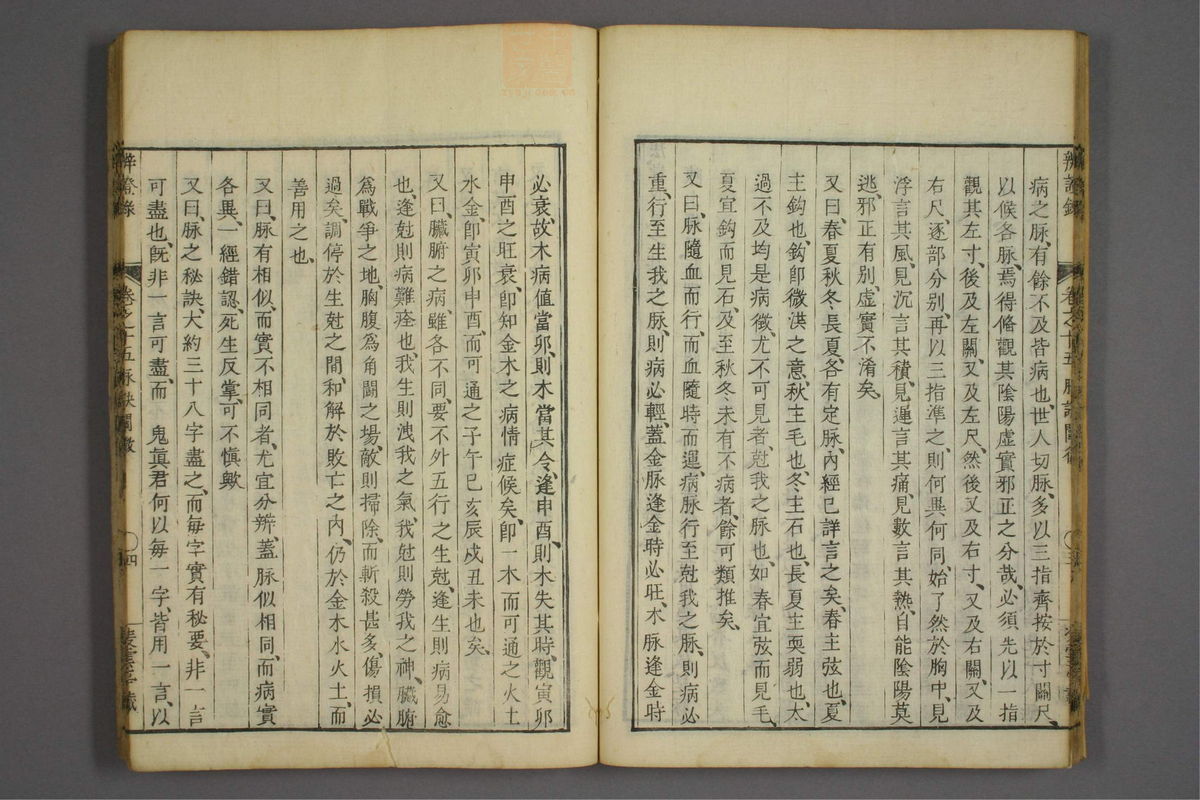 病之脉、有餘不及皆病也、世人切脉、多以三指齊按於寸關尺、
以候各脉、焉得備觀其陰陽虛實邪正之分哉、必須先以一指
觀其左寸、後及左關、又及左尺、然後又及右寸、又及右關、又及
右尺、逐部分別、再以三指準之、則何異何同、始了然於胸中、見
浮言其風、見沉言其積、見遲言其痛、見數言其熱、自能陰陽莫
逃、邪正有別、虛實不淆矣、
又曰、春夏秋冬長夏、各有定脉、內經已詳言之矣、春主弦也、夏
主鈎也、鈎卽微洪之意、秋主毛也、冬主石也、長夏主耎弱也、太
過不及、均是病徵、尤不可見者、尅我之脉也、如春宜弦而見毛、
夏宜鈎而見石、及至秋冬、未有不病者、餘可類推矣、
又曰、脉隨血而行、而血隨時而運、病脉行至尅我之脉、則病必
重、行至生我之脉、則病必輕、蓋金脉逢金時必旺、木脉逢金時
必衰、故木病値當卯、則木當其令、逢申酉、則木失其時、觀寅卯
申酉之旺衰、卽知金木之病情症候矣、卽一木而可通之火土
水金、卽寅卯申酉、而可通之子午巳亥辰戌丑未也、矣
又曰、臟腑之病、雖各不同、要不外五行之生尅、逢生則病易愈
也、逢尅則病難痊也、我生則洩我之氣、我尅則勞我之神、臟腑
爲戰爭之地、胸腹爲角鬪之場、敵則掃除、而斬殺甚多、傷損必
過矣、調停於生尅之間、和解於敗亡之內、仍於金木水火土、而
善用之也、
又曰、脉有相似、而實不相同者、尤宜分辨、蓋脉似相同、而病實
各異、一經錯認、死生反掌、可不愼歟
又曰、脉之秘訣、大約三十八字盡之、而每字實有秘要、非一言
可盡也、旣非一言可盡、而 鬼眞君何以每一字、皆用一言、以
辨證錄
卷之十五
四